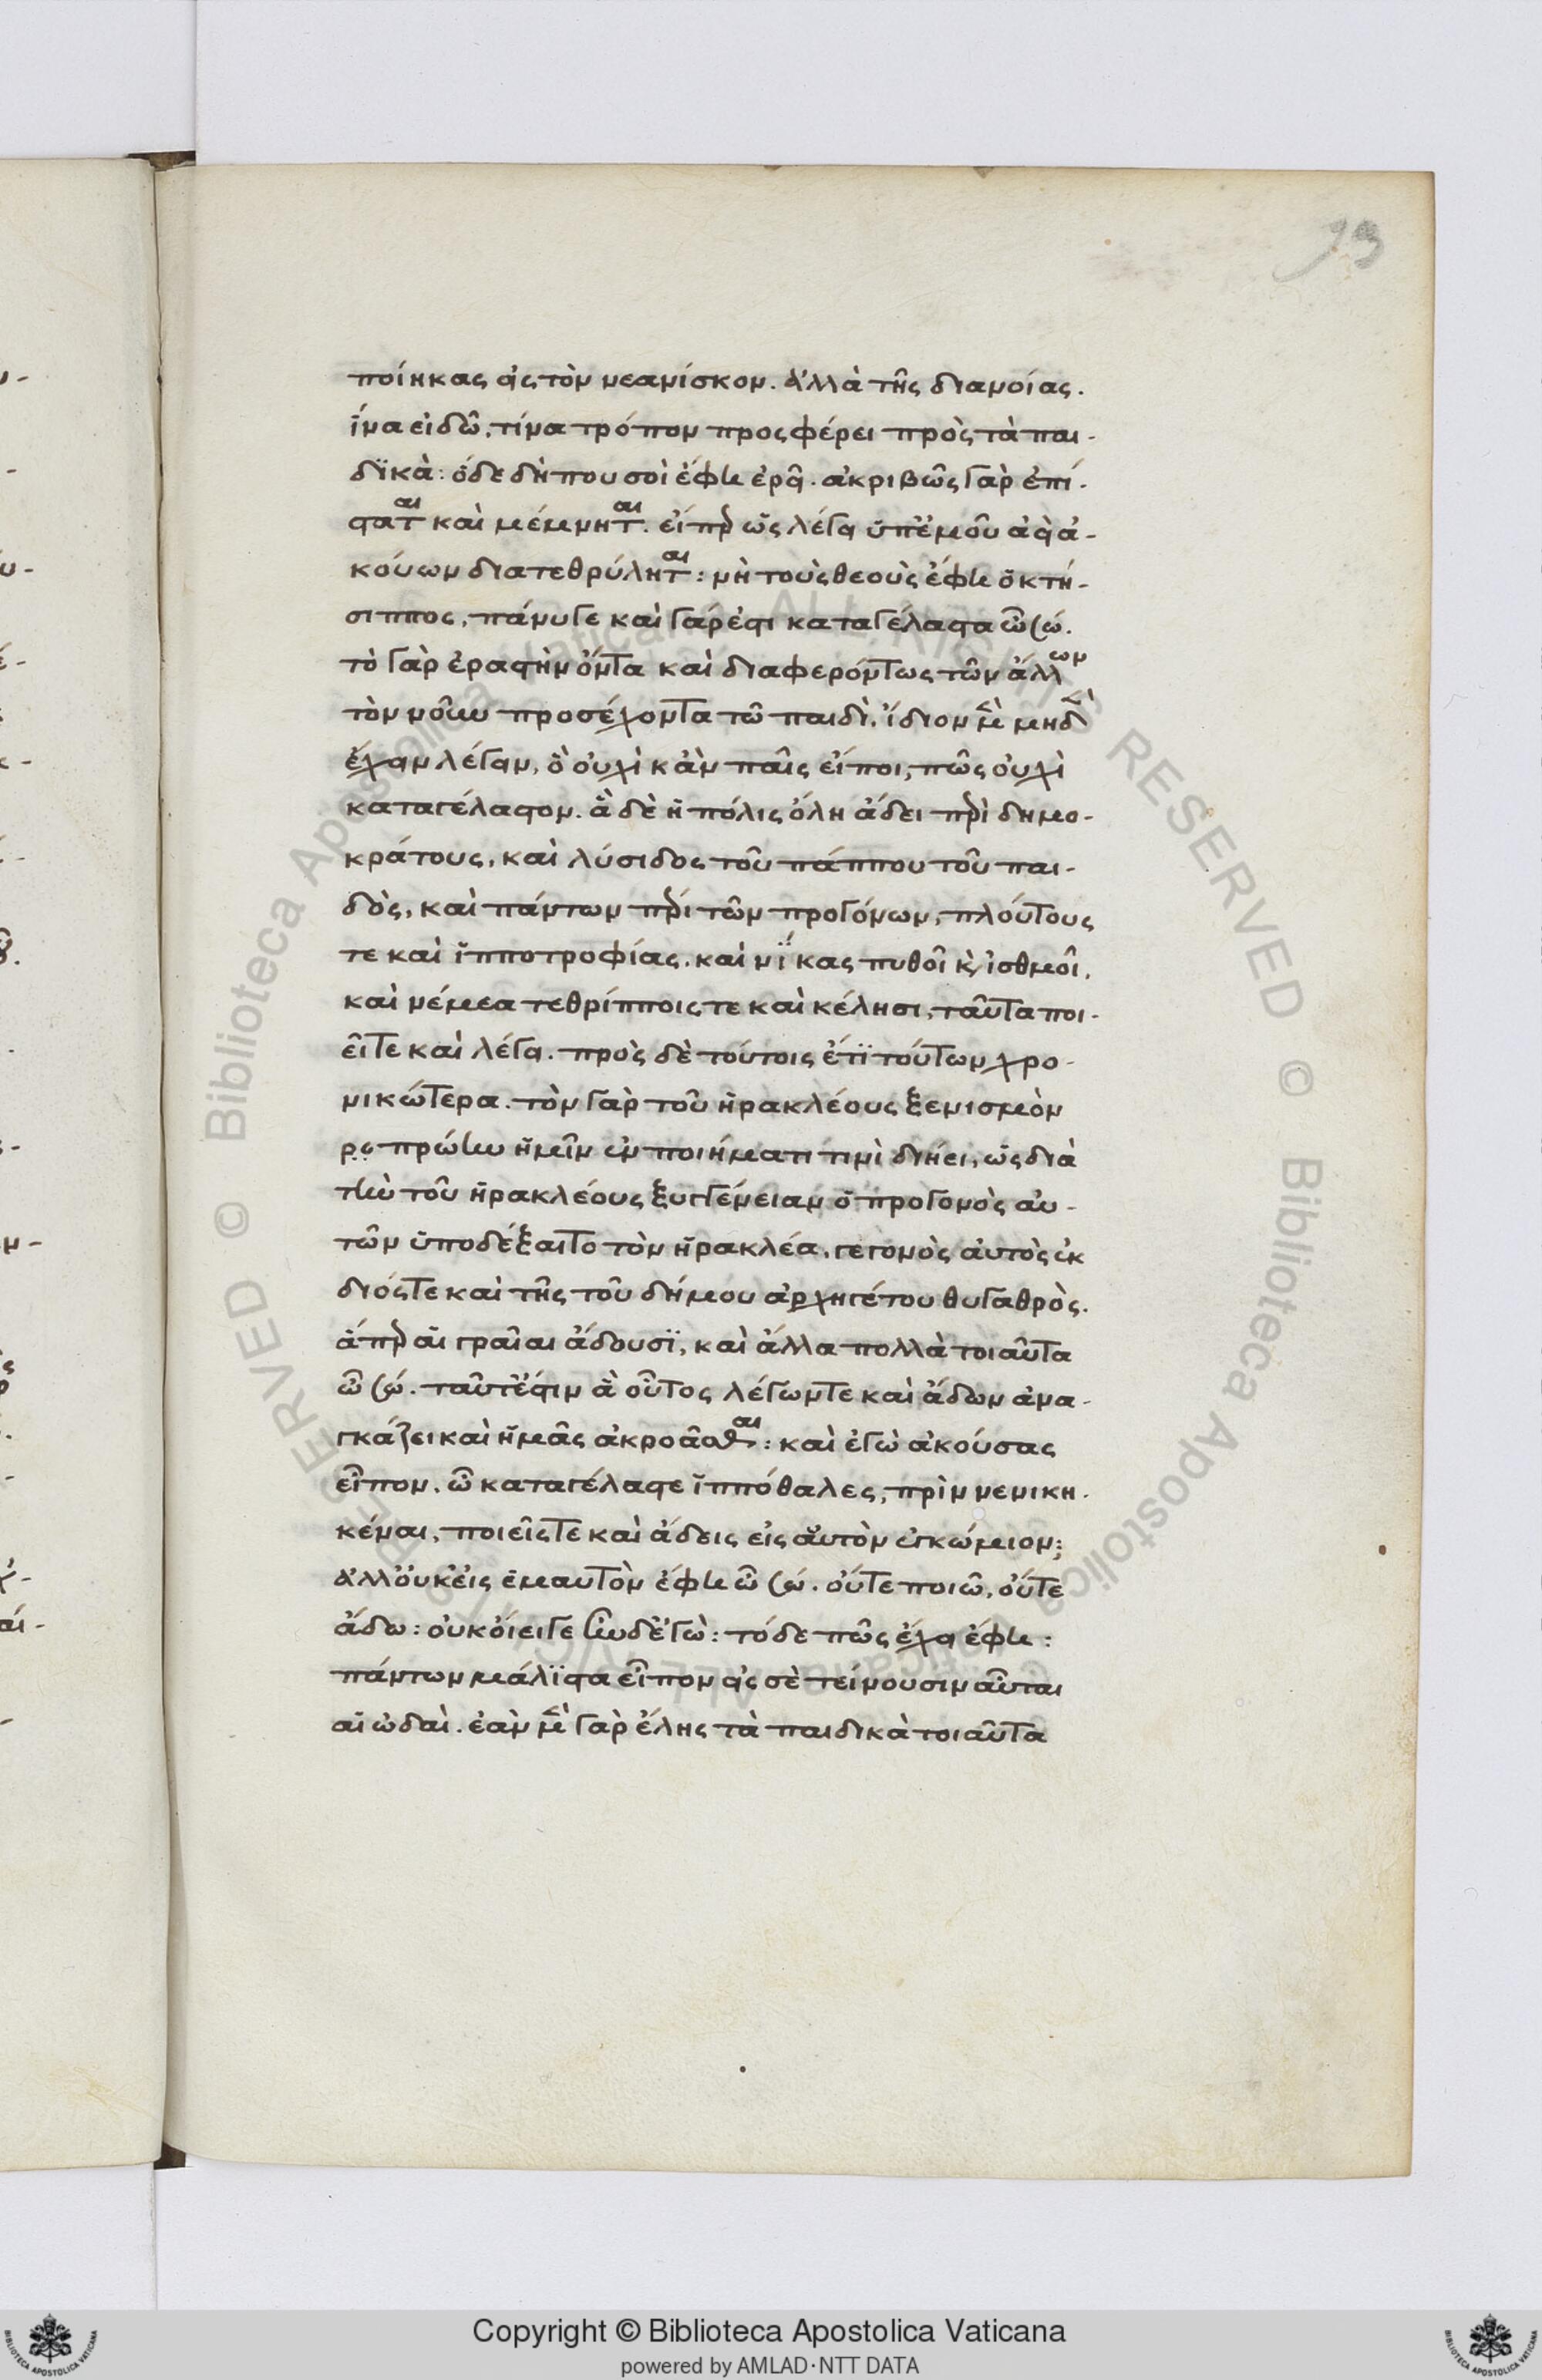 93
ποίηκας εἰς τὸν νεανίσκον. ἀλλὰ τῆς διανοίας.
ἵνα εἰδῶ, τίνα τρόπον προσφέρει πρὸς τὰ παι-
δϊκὰ: ὅδε δήπου σοὶ ἔφη ἐρεῖ. ἀκριβῶς γὰρ ἐπί-
σταται καὶ μέμνηται. εἴπερ ὡς λέγει ὑπ' ἐμοῦ ἀεὶ ἀ-
κούων διατεθρύληται: νὴ τοὺς θεοὺς ἔφη ὁ κτή-
σιππος, πάνυ γε καὶ γάρ ἐστι καταγέλαστα ὦ σώ.
τὸ γὰρ ἐραστὴν ὄντα καὶ διαφερόντως τῶν ἄλλων
τὸν νοῦν προσέχοντα τῶ παιδὶ, ἴδιον μὲν μηδὲν
ἔχειν λέγειν, ὃ οὐχὶ κἂν παῖς εἴποι, πῶς οὐχὶ
καταγέλαστον. ἃ δὲ ἡ πόλις ὅλη ἄδει περὶ δημο-
κράτους, καὶ λύσιδος τοῦ πάππου τοῦ παι-
δὸς, καὶ πάντων περὶ τῶν προγόνων, πλούτους
τε καὶ ἱπποτροφίας. καὶ νίκας πυθοῖ καὶ ἰσθμοῖ,
καὶ νέμεα τεθρίπποις τε καὶ κέλησι, ταῦτα ποι-
εῖτε καὶ λέγει. πρὸς δὲ τούτοις ἔτϊ τούτων χρο-
νικώτερα. τὸν γὰρ τοῦ ἡρακλέους ξενισμὸν
πρώην ἡμῖν ἐν ποιήματι τινὶ διήει, ὡς διὰ
τὴν τοῦ ἡρακλέους ξυγγένειαν ὁ προγονὸς αυ-
τῶν ὑποδέξαιτο τὸν ἡρακλέα, γεγονὸς ἀυτὸς ἐκ
διός τε καὶ τῆς τοῦ δήμου ἀρχηγέτου θυγαθρὸς.
ἅπερ αἱ γραῖαι ἄδουσϊ, καὶ ἄλλα πολλὰ τοιαῦτα
ὦ σώ. ταῦτ' ἔστιν ἃ οὗτος λέγων τε καὶ ἄδων ἀνα-
γκάζει καὶ ἡμᾶς ἀκροᾶσθαι: καὶ ἐγὼ ἀκούσας
εἶπον. ὦ καταγέλαστε ἱππόθαλες, πρὶν νενικη-
κέναι, ποιεῖς τε καὶ ἄδεις εἰς ἁυτὸν ἐγκώμιον;
ἀλλ' ὀυκ εἰς ἐμαυτὸν ἔφη ὦ σώ. οὔτε ποιῶ, οὔτε
ἄδω: οὐκ ὄιει γε ἦν δ' ἐγὼ: τό δε πῶς ἔχει ἔφη:
πάντων μάλϊστα εἶπον εἰς σὲ τείνουσιν αὗται
αἱ ὠδαὶ. ἐὰν μὲν γὰρ ἕλης τὰ παιδικὰ τοιαῦτα
Copyright © Biblioteca Apostolica Vaticana
powered by AMLAD·NTT DATA